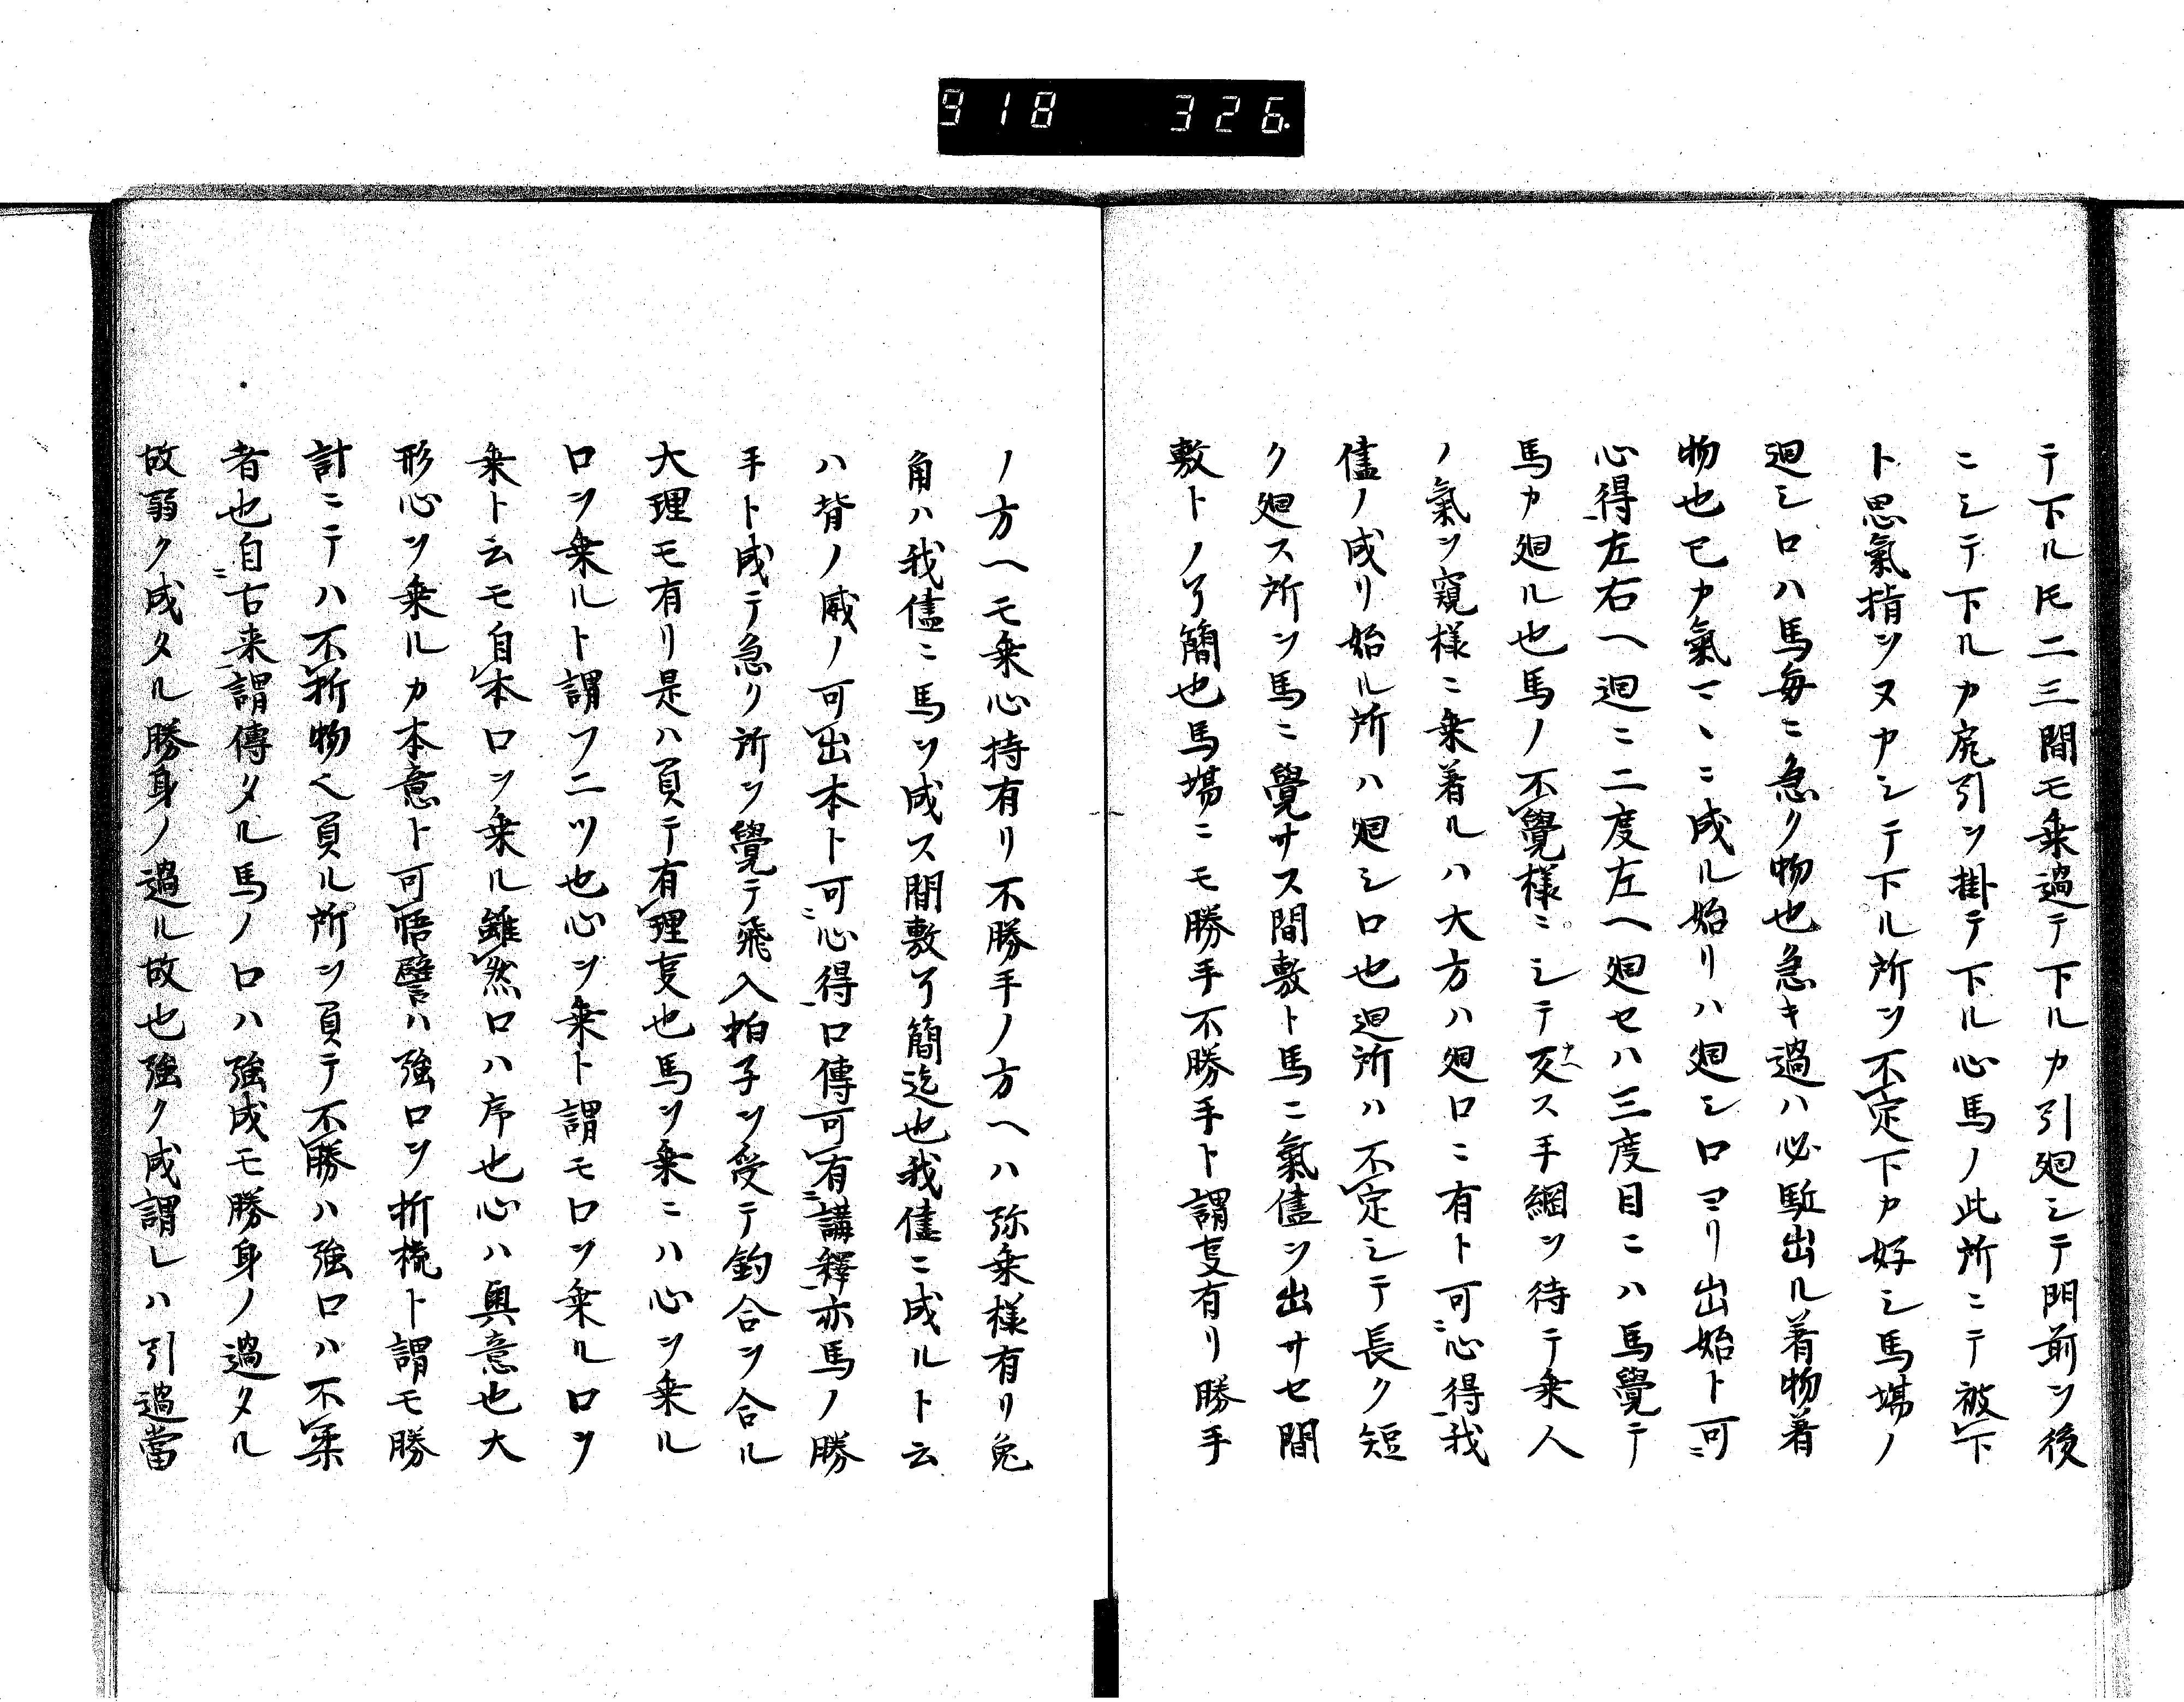 918 326
テ下ル𪜈二三間モ乗過テ下ルカ引廻シテ門前ヲ後
ニシテ下ルカ尻引ヲ掛テ下ル心馬ノ此所ニテ被下
ト思氣指ヲヌカシテ下ル所ヲ不定下カ好シ馬場ノ
廻シ口ハ馬毎ニ急ク物也急キ過ハ必駈出ル着物着
物也已カ氣マヽニ成ル始リハ廻シ口ヨリ出始ト可
心得左右ヘ廻ニ二度左ヘ廻セハ三度目ニハ馬覺テ
馬カ廻ル也馬ノ不覺様ニシテ交ス手綱ヲ待テ乗人
ノ氣ヲ窺様ニ乗着ルハ大方ハ廻口ニ有ト可心得我
儘ノ成リ始ル所ハ廻シ口也廻所ハ不定シテ長ク短
ク廻ス所ヲ馬ニ覺サス間敷ト馬ニ氣儘ヲ出サセ間
敷トノ了簡也馬場ニモ勝手不勝手ト謂叓有リ勝手
ノ方ヘモ乗心持有リ不勝手ノ方ヘハ弥乗様有リ兎
角ハ我儘ニ馬ヲ成ス間敷了簡迄也我儘ニ成ルト云
ハ背ノ威ノ可出本ト可心得口傳可有講釋亦馬ノ勝
手ト成テ急ク所ヲ覺テ飛入拍子ヲ受テ釣合ヲ合ル
大理モ有リ是ハ負テ有理叓也馬ヲ乗ニハ心ヲ乗ル
口ヲ乗ルト謂フ二ツ也心ヲ乗ト謂モ口ヲ乗ル口ヲ
乗ト云モ自本口ヲ乗ル雖然口ハ序也心ハ奥意也大
形心ヲ乗ルカ本意ト可悟譬ハ強口ヲ折挽ト謂モ勝
計ニテハ不折物ヘ負ル所ヲ負テ不勝ハ強口ハ不乗
者也自古来謂傳タル馬ノ口ハ強成モ勝身ノ過タル
故弱ク成タル勝身ノ過ル故也強ク成謂レハ引過當